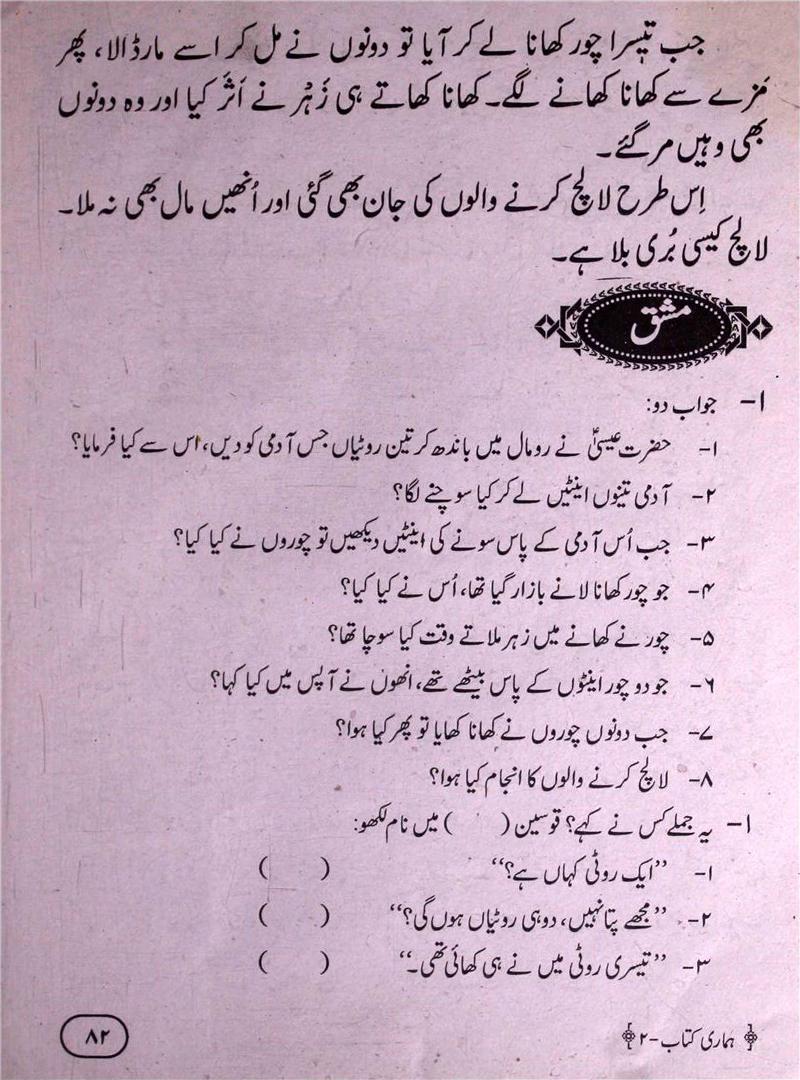 جب تیسرا چور کھانا لے کر آیا تو دونوں نے مل کر اسے مار ڈالا، پھر
مَزے سے کھانا کھانے لگے۔ کھانا کھاتے ہی زَہْر نے اَثَر کیا اور وہ دونوں
بھی وہیں مر گئے۔
اِس طرح لالچ کرنے والوں کی جان بھی گئی اور اُنھیں مال بھی نہ ملا۔
لالچ کیسی بُری بلا ہے۔
مشق
۱- جواب دو:
۱- حضرت عیسیٰؑ نے رومال میں باندھ کر تین روٹیاں جس آدمی کو دیں، اس سے کیا فرمایا؟
۲- آدمی تینوں اینٹیں لے کر کیا سوچنے لگا؟
۳- جب اُس آدمی کے پاس سونے کی اینٹیں دیکھیں تو چوروں نے کیا کیا؟
۴- جو چور کھانا لانے بازار گیا تھا، اُس نے کیا کیا؟
۵- چور نے کھانے میں زہر ملاتے وقت کیا سوچا تھا؟
۶- جو دو چور اینٹوں کے پاس بیٹھے تھے، انھوں نے آپس میں کیا کہا؟
۷- جب دونوں چوروں نے کھانا کھایا تو پھر کیا ہوا؟
۸- لالچ کرنے والوں کا انجام کیا ہوا؟
۱- یہ جملے کس نے کہے؟ قوسین ( ) میں نام لکھو:
۱- ”ایک روٹی کہاں ہے؟“ ( )
۲- ”مجھے پتا نہیں، دو ہی روٹیاں ہوں گی؟“ ( )
۳- ”تیسری روٹی میں نے ہی کھائی تھی۔“ ( )
ہماری کتاب-۲
۸۲